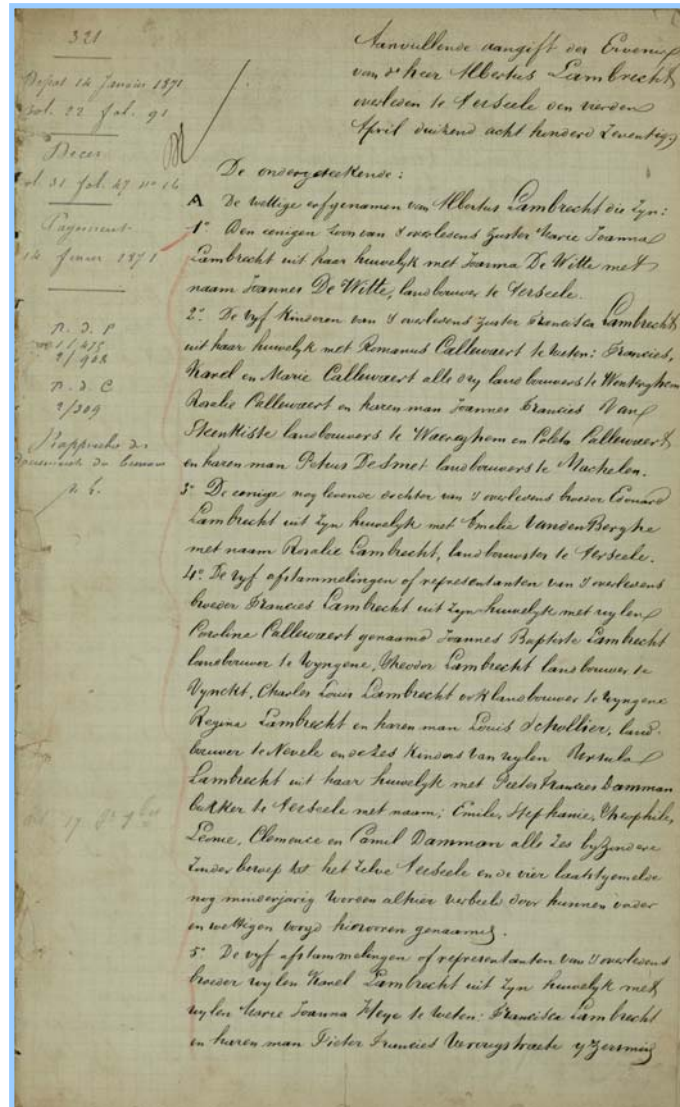 321
Depot 14 Janvier 1871
Vol. 22 fol. 91
Décès
vol. 31 fol. 47 n° 16
Payement
14 1871
n. d. P
1/475
2/908
n. d. C
2/309
Aanvullende aangift der Ervenis
van de heer Albertus Lambrecht
overleden te Aerseele den vierden
April duizend acht honderd Zeventig.
De ondergeteekende:
A De wettige erfgenamen van Albertus Lambrecht die zyn:
1° Den eenigen zoon van 's overledens zuster Marie Joanna
Lambrecht uit haar huwelyk met Joanna De Witte met
naam Joannes De Witte, landbouwer te Aerseele.
2° De vyf kinderen van 's overledens zuster Francisca Lambrecht
uit haar huwelyk met Romanus Callewaert te weten: Francies,
Karel en Marie Callewaert alle dry landbouwers te Wonterghem
Rosalie Callewaert en haren man Joannes Francies Van
Steenkiste landbouwers te Waereghem en Coleta Callewaert
en haren man Petrus Desmet landbouwers te Machelen.
3° De eenige nog levende dochter van 's overledens broeder Edouard
Lambrecht uit zyn huwelyk met Emelie VandenBerghe
met naam Rosalie Lambrecht, landbouwster te Aerseele.
4° De vyf afstammelingen of representanten van 's overledens
broeder Francies Lambrecht uit zyn huwelyk met wylen
Caroline Callewaert genaamd Joannes Baptiste Lambrecht
landbouwer te Wyngene, Theodor Lambrecht landbouwer te
Vynckt, Charles Louis Lambrecht ook landbouwer te Wyngene
Regina Lambrecht en haren man Louis Schollier, land-
bouwer te Nevele en de zes kinders van wylen Ursula
Lambrecht uit haar huwelyk met Pieter Francies Damman
bakker te Aerseele met naam; Emile, Stephanie, Theophile,
Leonie, Clemence en Camil Damman alle zes byzondere
zonder beroep tot het zelve Aerseele en de vier laatstgemelde
nog minderjarig worden alhier verbeeld door hunnen vader
en wettigen voogd hiervoren genaamd.
5° De vyf afstammelingen of representanten van 's overledens
broeder wylen Karel Lambrecht uit zyn huwelyk met
wylen Marie Joanna Heye te weten: Francisca Lambrecht
en haren man Pieter Francies Verougstraete